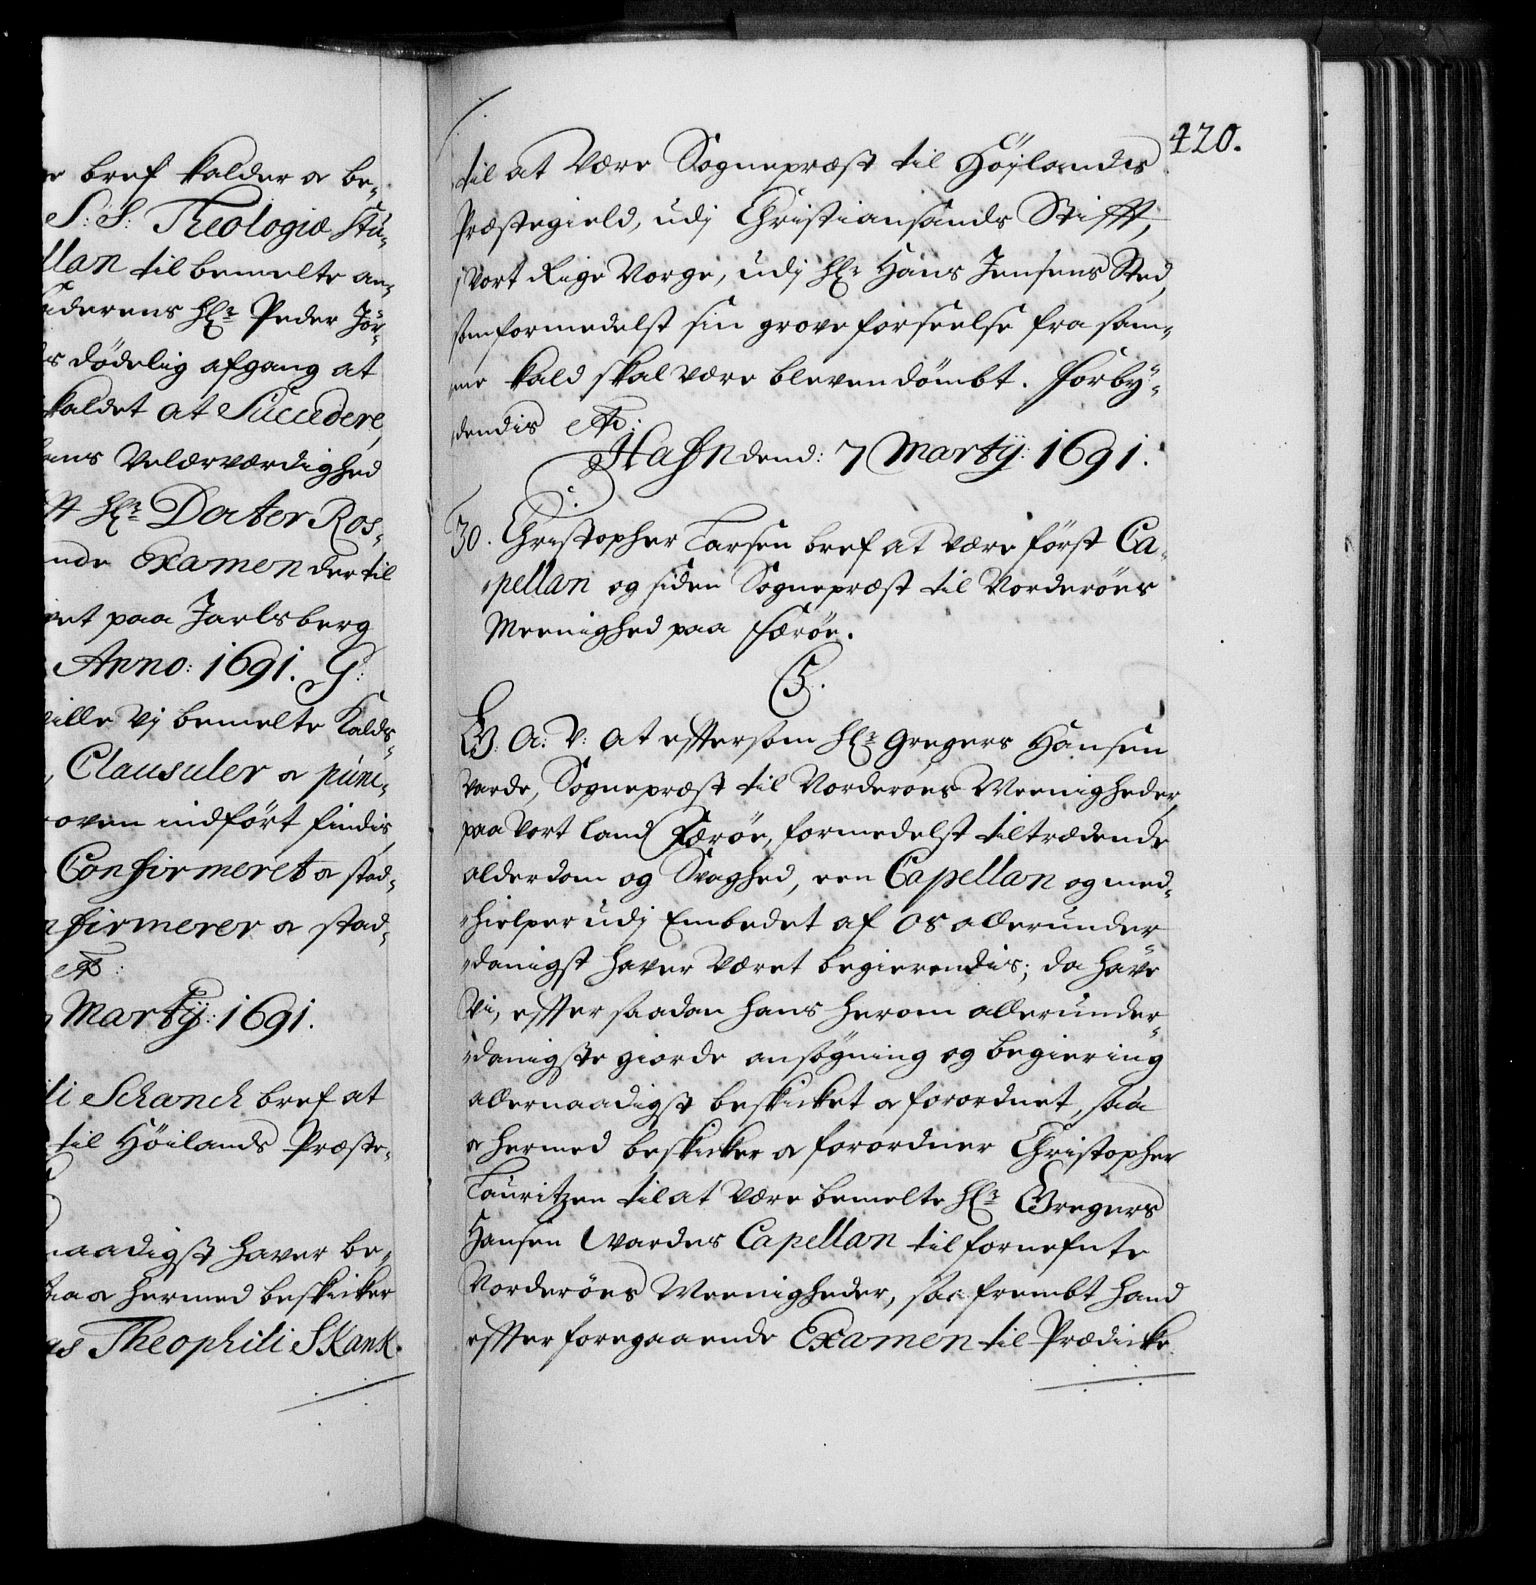 e bref kalder o be-
S: S: Theologiæ Stu-
llan til bemelte an-
Hr Peder Jör-
s dödelig afgang at
kaldet at Succedere,
ans Velærværdighed
Hr Docter Ros-
nde Examen der til
et paa Jarlsberg
Anno: 1691. G:
ville Vj bemelte Kalds-
, Clausuler o punc-
oven indfört findis,
Confirmeret o stad-
firmerer o stad-
etc:
Martij: 1691.
li Schanck bref at
til Höilands Præste-
naadigst hafver be-
saa o hermed beskicker
as Theophili Skank.
420.
til at Være Sognepræst til Höjlandes
Præstegield, udj Christiansands Stifft,
j Vort Rige Norge, udj Hr Hans Jensens Sted,
som formedelst sin grove forseelse fra sam-
me kald skal være bleven dömbt. Forby-
dendis etc:
Hafn dend: 7 Martij: 1691.
30. Christopher Larsen bref at være först Ca-
pellan og siden Sognepræst til Norderöes
Meenighed paa Færöe.
C5.
G: A: V: at efftersom Hr Gregers Hansen
Varde, Sognepræst til Norderöes Meenigheder,
paa Vort land Færöe, formedelst tiltrædende
alderdom og Svaghed, een Capellan og med-
hielper udj Embedet af Os allerunder
danigst haver været begierendis; da have
Vi, effter saadan hans herom allerunder-
danigste giorde ansögning og begiering
allernaadigst beskicket o forordnet, saa
o hermed beskicker o forordner Christopher
Lauritzen til at være bemelte Hr Gregers
Hansen Wardes Capellan til fornefnte
Norderöes Meenigheder, saa frembt hand
effter foregaaende Examen til Prædicke